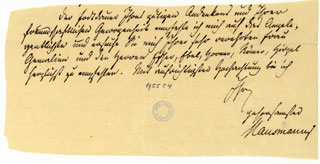 Der Fortdauer Ihres gütigen Andenkens und Ihrer
freundschaftlichen Gewogenheit empfehle ich mich auf das Angele-
gentlichste und ersuche Sie mich Ihrer sehr verehrten Frau
Gemahlin und den Herren
herzlichst zu empfehlen. Mit Hochachtung bin ich
1955 C 4
Ihr
gehorsamster
Hausmann